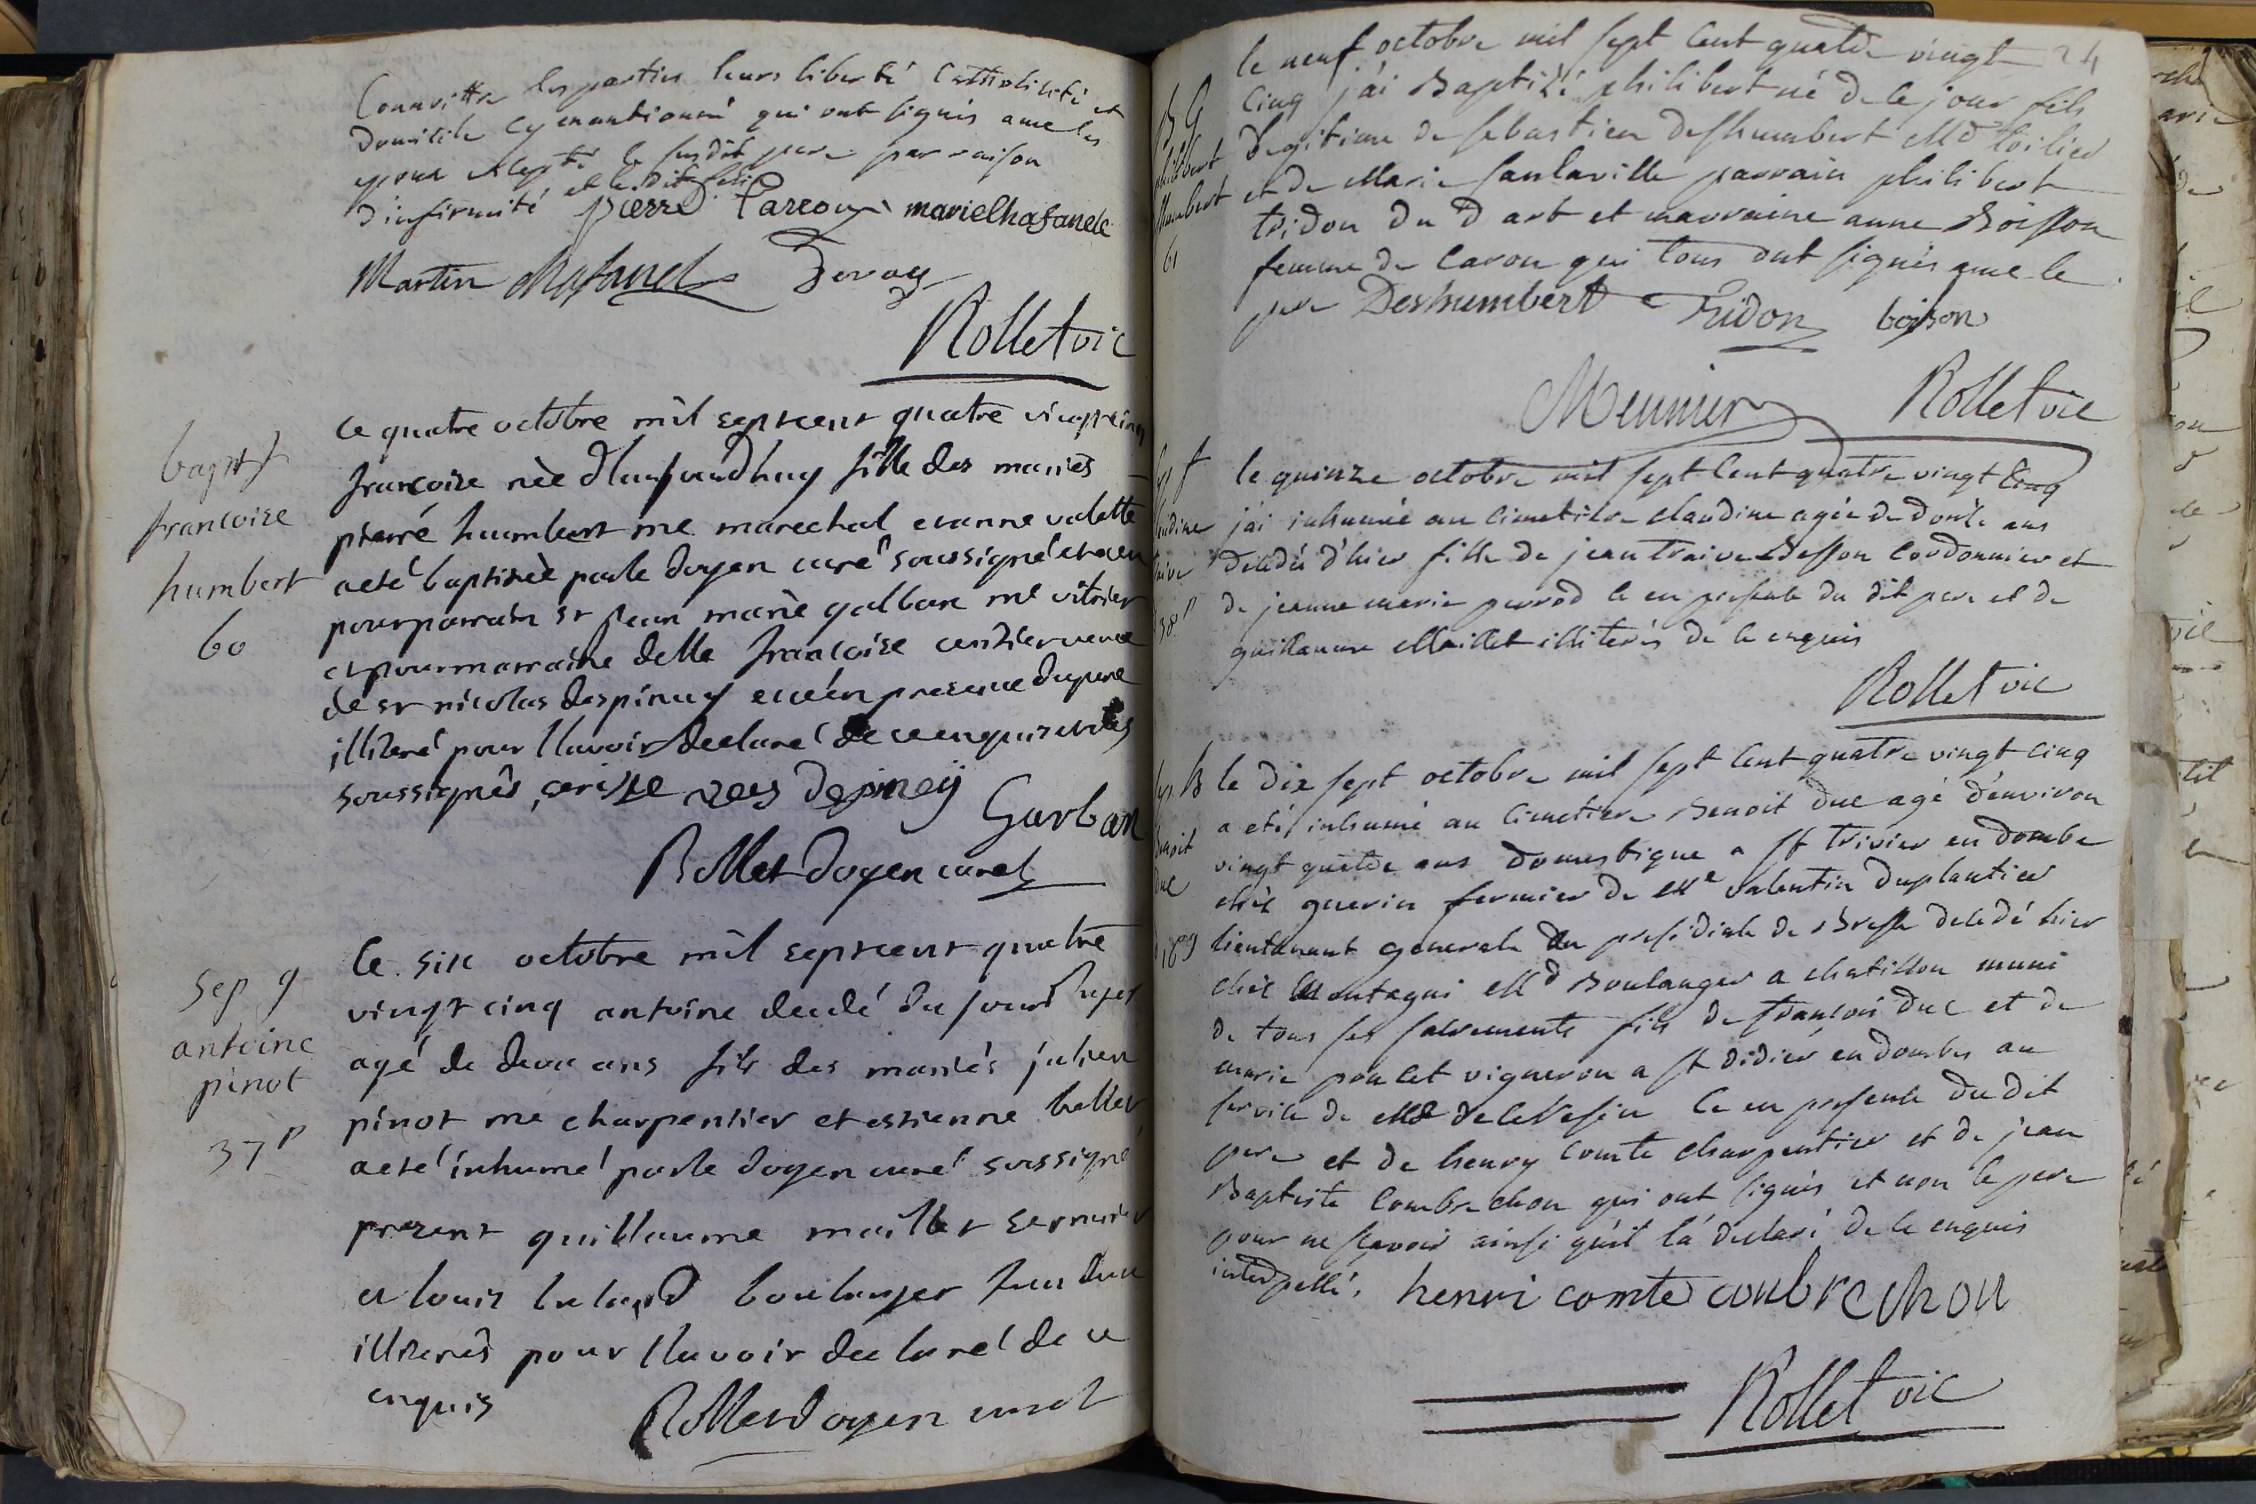 Connoitre les parties leurs liberté Catholicité et
domicile cy mentionné qui ont signés avec les
epoux excepté le susdit pere par raison
d'infirmité et le dit
pierre marie Chafanele
Martin Chafanel Devay
Rollet vic
bapt f
francoise
humbert
60
Ce quatre octobre mil sept cent quatre vingt cinq
francoise née d'aujourdhuy fille des mariés
pierre humbert me marechal et anne valette
a eté baptisée par le doyen curé soussigné et a eu
pour parrain sr jean marie galban me vitrier
et pour marraine delle francoise cerisier veuve
de sr nicolas despiney et ce en presence du pere
illiteré pour l'avoir declaré de ce enquis et les
soussignés cerisse depiney
Garban
Rollet doyen curé
Sep g
antoine
pinot
37 p
Ce six octobre mil sept cent quatre
vingt cinq antoine decedé du jour d'hyer
agé de deux ans fils des mariés julien
pinot me charpentier et estienne
a eté inhumé par le doyen curé soussigné
present guillaume maillet serrurier
et louis boulanger tous deux
illiterés pour l'avoir declaré de ce
enquis
Rollet doyen curé
24
B G
philibert
shumbert
61
le neuf octobre mil sept cent quatre vingt
cinq j'ai Baptisé philibert né de ce jour fils
legitime de sebastien Deshumbert Md toilier
et de Marie sanlaville parrain philibert
tridon du d art et marraine anne Boisson
femme de Caron qui tous ont signés avec le
pere Deshumbert Tridon boison
Meunier Rollet vic
f
audine
raive
38 p
le quinze octobre mil sept cent quatre vingt cinq
j'ai inhumé au cimetiere claudine agée de douze ans
decedée d'hier fille de jean traive Besson cordonnier et
de jeanne marie perrod ce en presence du dit pere et de
guillaume Maillet illiterés de ce enquis
Rollet vic
B
benoit
duc
le dix sept octobre mil sept cent quatre vingt cinq
a eté inhumé au cimetiere Benoit duc agé d'environ
vingt quatre ans domestique a st trivier en dombe
chés guerin fermier de Me valentin duplantier
lieutenant generale du presidiale de Bresse decedé hier
chés Montagni Md Boulanger a chatillon muni
de tous ses sacrements fils de francois duc et de
marie poncet vigneron a st didier en dombes au
service de Md ce en presence du dit
pere et de henry Comte charpentier et de jean
Baptiste Combrechon qui ont signés et non le pere
pour ne scavoir ainsi qu'il l'a declaré de ce enquis
interpellé. henri comte conbrechon
Rollet vic